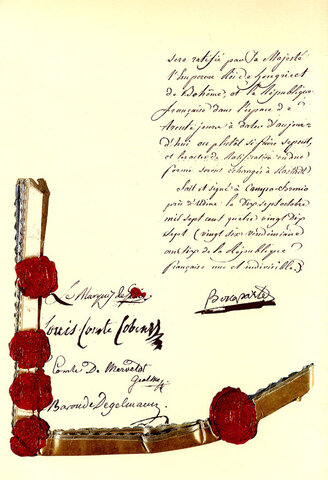 sera ratifié par Sa Majesté
l'Empereur Roi de hongrie et
de Bohême, et la République
française dans l'espace de
trente jours à dater d'aujour
d'hui ou plutôt si faire se peut,
et les actes de Ratification en due
forme seront échangés à Rastadt.
fait et signé à Campo-formio
près d'Udine le dix sept octobre
mil sept cent quatre vingt dix
sept (vingt six vendémiaire
an six de la République
française une et indivisible.)
Le Marquis de Gallo
Bonaparte
Louis Comte Cobenzl
Comte De Merveldt
Baron de Degelmann